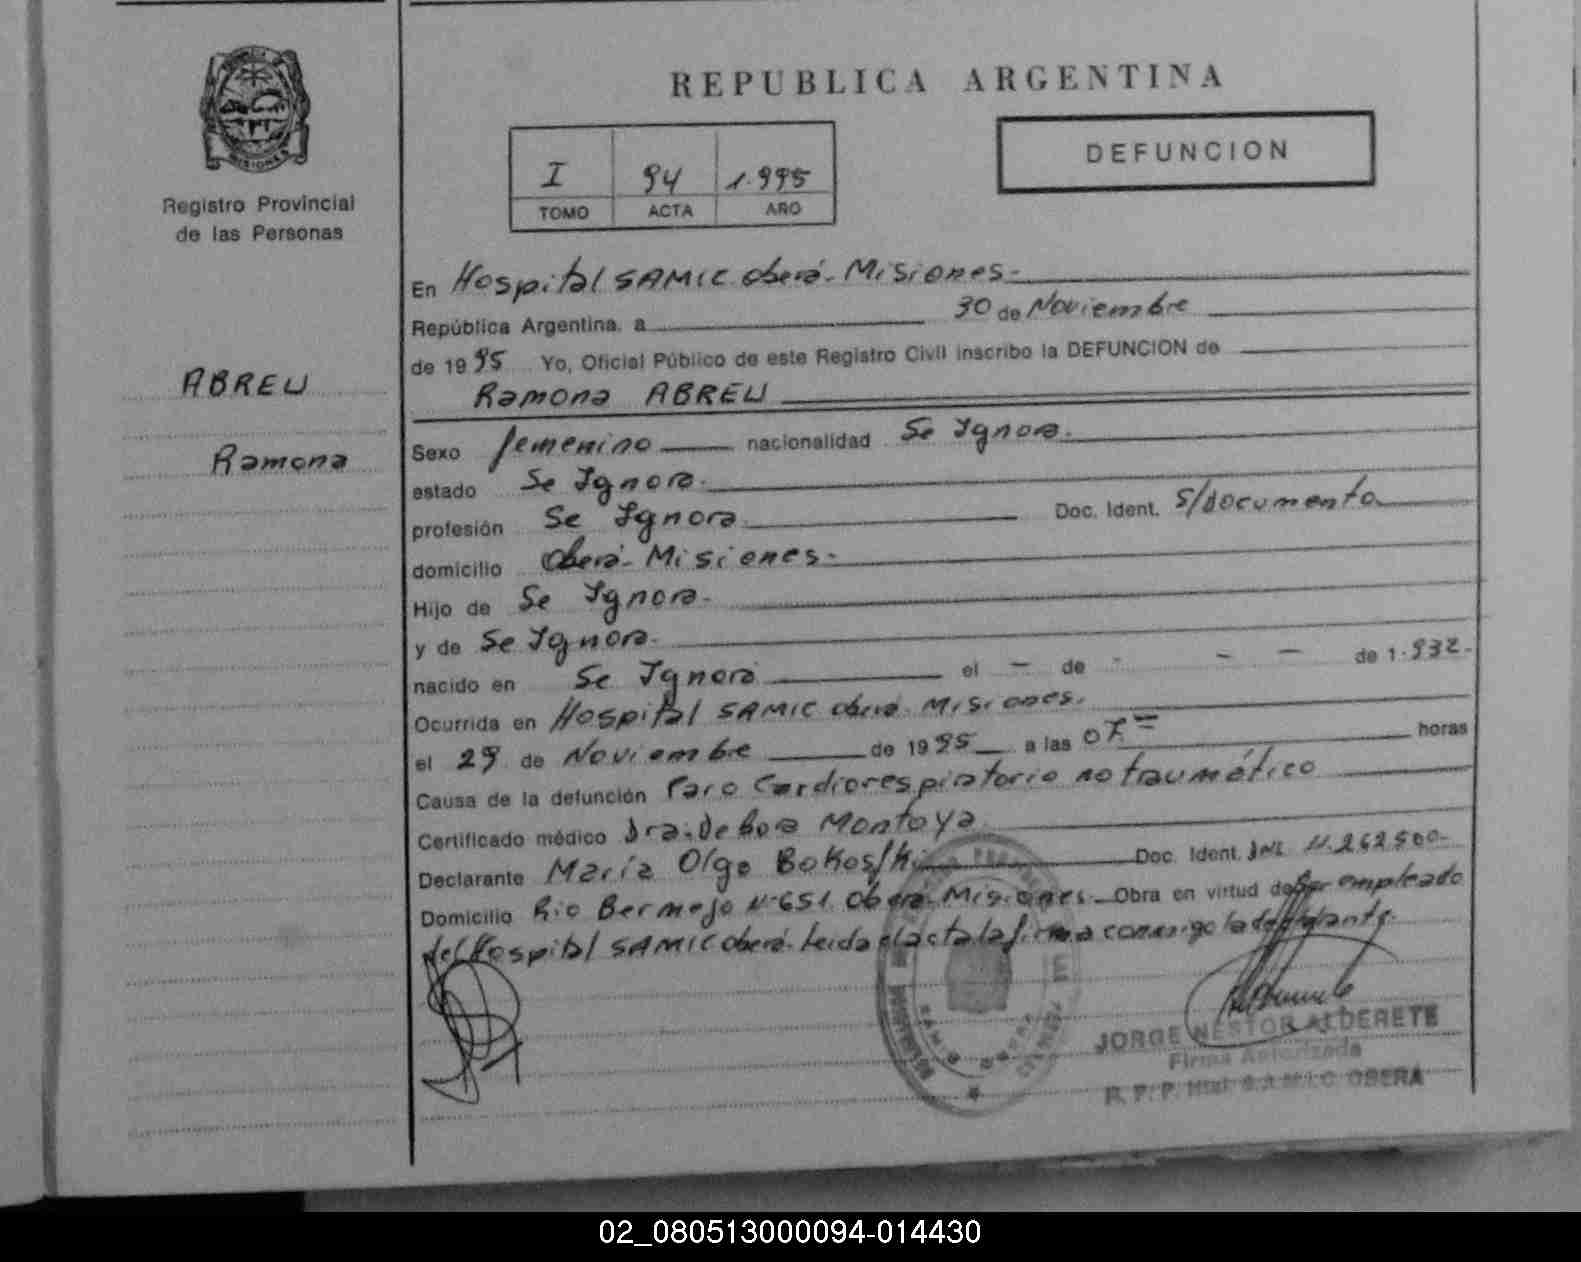 REPUBLICA ARGENTINA
MISIONES
Registro Provincial
de las Personas
I 94 1.995
TOMO ACTA AÑO
DEFUNCION
ABREU
Ramona
En Hospital SAMIC Oberá - Misiones -
República Argentina, a 30 de Noviembre
de 1995 Yo, Oficial Público de este Registro Civil inscribo la DEFUNCION de
Ramona ABREU
Sexo femenino nacionalidad Se Ignora.
estado Se Ignora.
profesión Se Ignora Doc. Ident. S/documento
domicilio Oberá - Misiones -
Hijo de Se Ignora -
y de Se Ignora -
nacido en Se Ignora el - de - - - de 1.932 -
Ocurrida en Hospital SAMIC Oberá - Misiones.
el 29 de Noviembre de 1995 a las 07 = horas
Causa de la defunción Paro Cardiorespiratorio no traumático
Certificado médico Dra. Debora Montoya
Declarante María Olga Doc. Ident. DNI 11.262.500 -
Domicilio Rio Bermejo Nº 651 Oberá - Misiones - Obra en virtud de Ser empleado
del Hospital SAMIC Oberá - Leida el acta la firma conmigo la declarante.
JORGE NESTOR ALDERETE
Firma Autorizada
R. P. P. Htal. S.A.M.I.C. OBERÁ
02_080513000094-014430